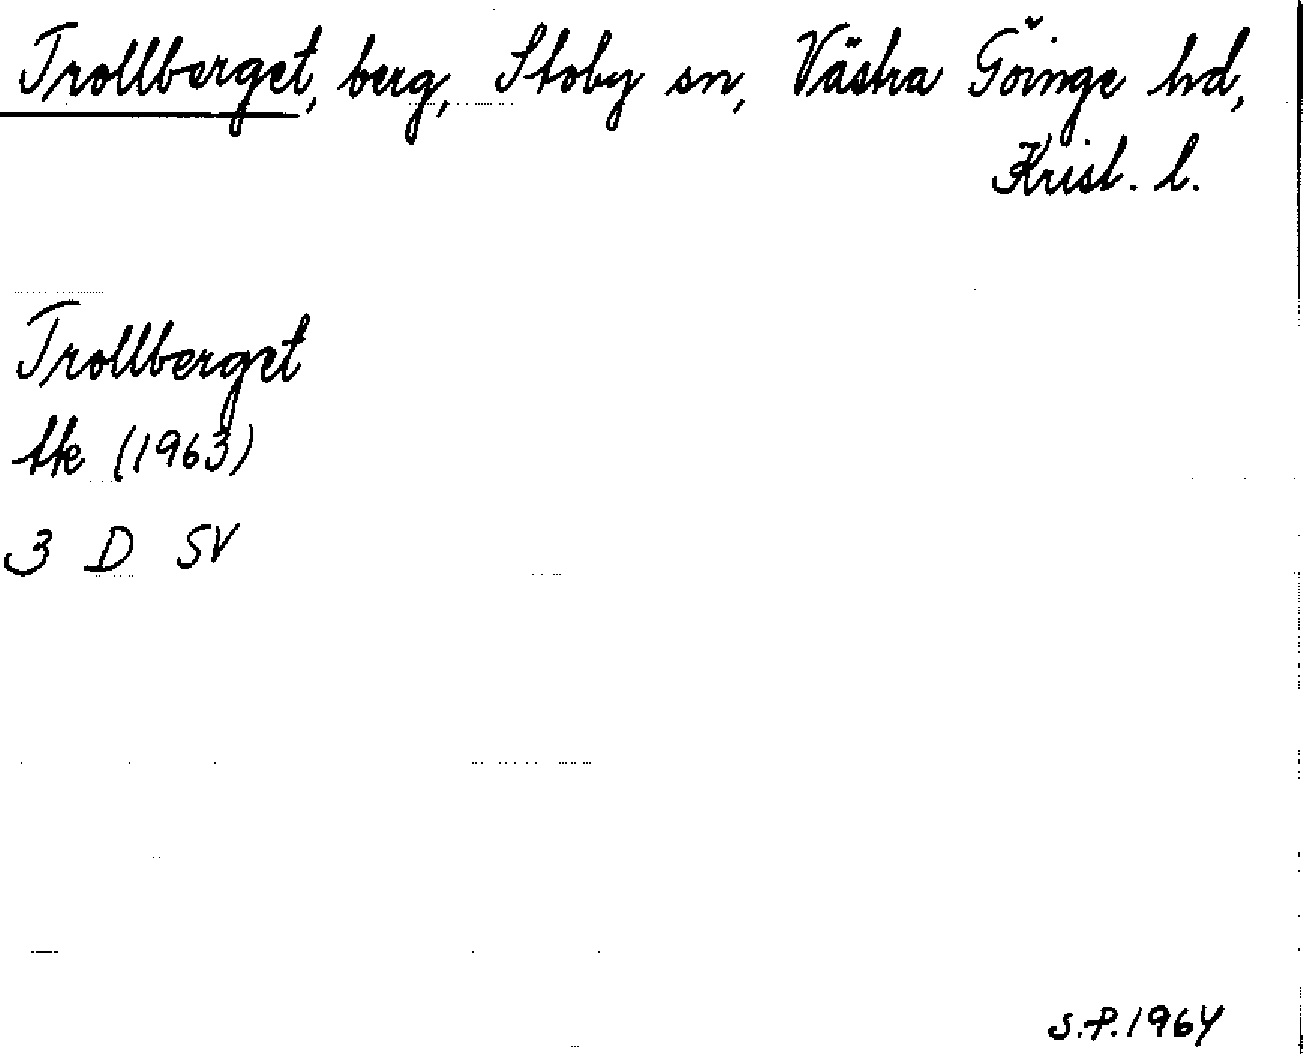 Trollberget, berg, Stoby sn, Västra Göinge hd,
Krist. l.
Trollberget
tfk (1963)
3 D SV
S.P. 1964